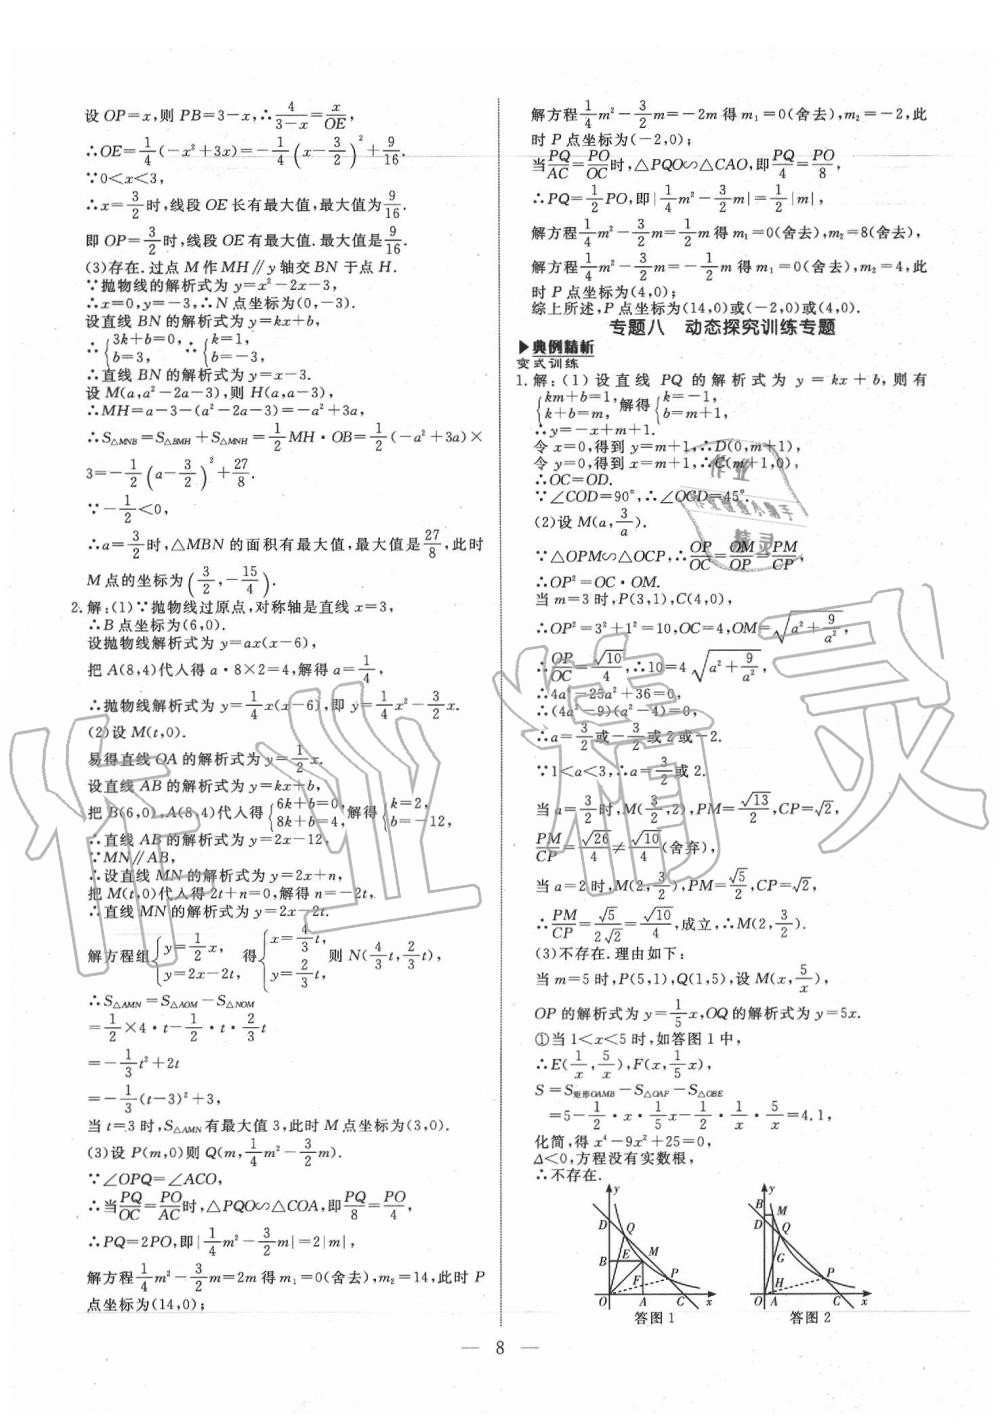 设OP=x,则PB=3-x,∴4/(3-x)=x/OE,
∴OE=1/4(-x²+3x)=-1/4(x-3/2)²+9/16.
∵0<x<3,
∴x=3/2时,线段OE长有最大值,最大值为9/16.
即OP=3/2时,线段OE有最大值.最大值是9/16.
(3)存在.过点M作MH∥y轴交BN于点H.
∵抛物线的解析式为y=x²-2x-3,
∴x=0,y=-3,∴N点坐标为(0,-3).
设直线BN的解析式为y=kx+b,
∴{3k+b=0, b=-3, ∴{k=1, b=-3,
∴直线BN的解析式为y=x-3.
设M(a,a²-2a-3),则H(a,a-3),
∴MH=a-3-(a²-2a-3)=-a²+3a,
∴S△MNB=S△BMH+S△MNH=1/2MH·OB=1/2(-a²+3a)×
3=-1/2(a-3/2)²+27/8.
∵-1/2<0,
∴a=3/2时,△MBN的面积有最大值,最大值是27/8,此时
M点的坐标为(3/2,-15/4).
2.解:(1)∵抛物线过原点,对称轴是直线x=3,
∴B点坐标为(6,0).
设抛物线解析式为y=ax(x-6),
把A(8,4)代人得a·8×2=4,解得a=1/4,
∴抛物线解析式为y=1/4x(x-6),即y=1/4x²-3/2x.
(2)设M(t,0).
易得直线OA的解析式为y=1/2x.
设直线AB的解析式为y=kx+b,
把B(6,0),A(8,4)代人得{6k+b=0, 8k+b=4, 解得{k=2, b=-12,
∴直线AB的解析式为y=2x-12,
∵MN∥AB,
∴设直线MN的解析式为y=2x+n,
把M(t,0)代人得2t+n=0,解得n=-2t,
∴直线MN的解析式为y=2x-2t.
解方程组{y=1/2x, y=2x-2t 得{x=4/3t, y=2/3t, 则N(4/3t,2/3t),
∴S△AMN=S△AOM-S△NOM
=1/2×4·t-1/2·t·2/3t
=-1/3t²+2t
=-1/3(t-3)²+3,
当t=3时,S△AMN有最大值3,此时M点坐标为(3,0).
(3)设P(m,0)则Q(m,1/4m²-3/2m).
∵∠OPQ=∠ACO,
∴当PQ/OC=PO/AC时,△PQO∽△COA,即PQ/8=PO/4,
∴PQ=2PO,即|1/4m²-3/2m|=2|m|,
解方程1/4m²-3/2m=2m得m₁=0(舍去),m₂=14,此时P
点坐标为(14,0);
解方程1/4m²-3/2m=-2m得m₁=0(舍去),m₂=-2,此
时P点坐标为(-2,0);
当PQ/AC=PO/OC时,△PQO∽△CAO,即PQ/4=PO/8,
∴PQ=1/2PO,即|1/4m²-3/2m|=1/2|m|,
解方程1/4m²-3/2m=1/2m得m₁=0(舍去),m₂=8(舍去),
解方程1/4m²-3/2m=-1/2m得m₁=0(舍去),m₂=4,此
时P点坐标为(4,0);
综上所述,P点坐标为(14,0)或(-2,0)或(4,0).
专题八 动态探究训练专题
▶典例精析
变式训练
1.解:(1)设直线PQ的解析式为y=kx+b,则有
{km+b=1, k+b=m, 解得{k=-1, b=m+1,
∴y=-x+m+1.
令x=0,得到y=m+1,∴D(0,m+1),
令y=0,得到x=m+1,∴C(m+1,0),
∴OC=OD.
∵∠COD=90°,∴∠OCD=45°.
(2)设M(a,3/a).
∵△OPM∽△OCP,∴OP/OC=OM/OP=PM/CP,
∴OP²=OC·OM.
当m=3时,P(3,1),C(4,0),
∴OP²=3²+1²=10,OC=4,OM=√(a²+9/a²),
∴OP/OC=√10/4,∴10=4√(a²+9/a²),
∴4a⁴-25a²+36=0,
∴(4a²-9)(a²-4)=0,
∴a=3/2或-3/2或2或-2.
∵1<a<3,∴a=3/2或2.
当a=3/2时,M(3/2,2),PM=√13/2,CP=√2,
PM/CP=√26/4≠√10/4(舍弃),
当a=2时,M(2,3/2),PM=√5/2,CP=√2,
∴PM/CP=√5/2√2=√10/4,成立,∴M(2,3/2).
(3)不存在.理由如下:
当m=5时,P(5,1),Q(1,5),设M(x,5/x),
OP的解析式为y=1/5x,OQ的解析式为y=5x.
①当1<x<5时,如答图1中,
∴E(1/x,5/x),F(x,1/5x),
S=S矩形OAMB-S△OAF-S△OBE
=5-1/2·x·1/5x-1/2·1/x·5/x=4.1,
化简,得x⁴-9x²+25=0,
Δ<0,方程没有实数根,
∴不存在.
y D Q B E M F P O A C x
答图1
y B M D Q G P H O A C x
答图2
8
作业精灵
作业
精灵